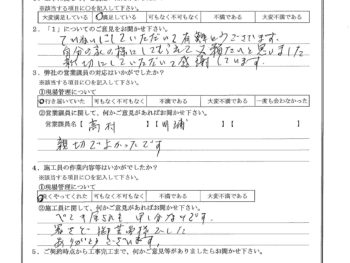 ※該当する項目に○を記入して下さい。
大変満足している ○満足している 可もなく不可もなく 不満である 大変不満である
2.「1」についてのご意見をお聞かせ下さい。
ていねいにしていただいて有難うございます。
自分の家の様にしてもらえて
親切にしていただいて感謝しています。
3.弊社の営業課員の対応はいかがでしたか?
※該当する項目に○を記入して下さい。
①現場管理について
○行き届いていた 可もなく不可もなく 不満である 大変不満である 一度も会わなかった
②営業課員に関して、何かご意見があればお聞かせ下さい。
営業課員名【 高村 】【 】
親切でよかったです
4.施工員の作業内容等はいかがでしたか?
※該当する項目に○を記入して下さい。
①現場管理について
○良くやってくれた 可もなく不可もなく 不満である 大変不満である
②施工員に関して、何かご意見があればお聞かせ下さい。
申し分なしです。
暑さで御苦労様でした
ありがとうございます。
5.ご契約時点から工事完工まで、何かご意見等がありましたらお聞かせ下さい。